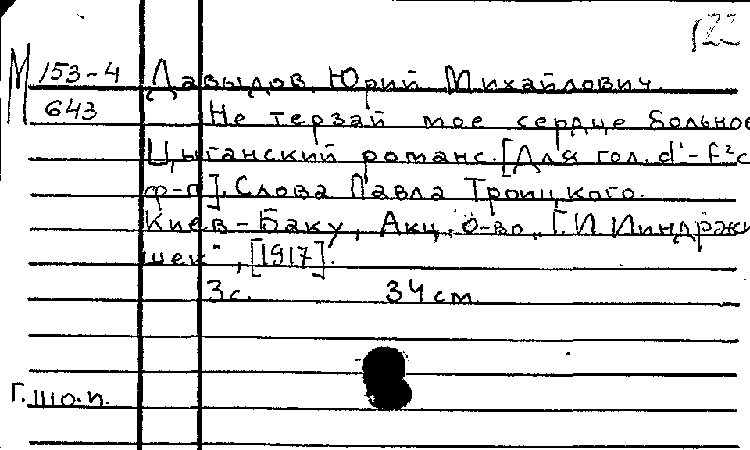 122
М 153-4 Давыдов, Юрий Михайлович.
643 Не терзай мое сердце больное
Цыганский романс. [Для гол. d'-f² с
ф-п]. Слова Павла Троицкого.
Киев-Баку, Акц. о-во „Г.И. Индржи
шек", [1917].
3с. 34 см.
Г.